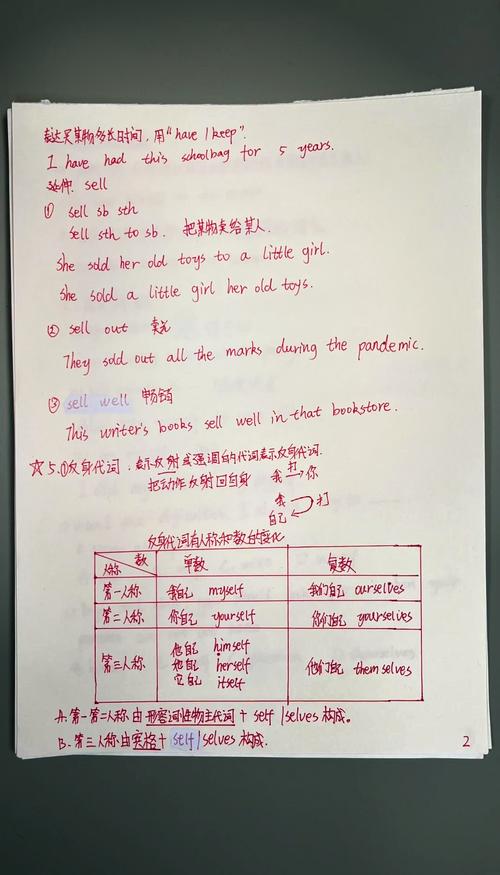 表达买某物多长时间，用"have / keep".
I have had this schoolbag for 5 years.
延伸. sell
① sell sb sth
sell sth to sb. 把某物卖给某人.
She sold her old toys to a little girl.
She sold a little girl her old toys.
② sell out 卖光
They sold out all the marks during the pandemic.
③ sell well 畅销
This writer's books sell well in that bookstore.
☆5.①反身代词. 表示反射或强调的代词表示反身代词.
把动作反射回自身 我 打→ 你
我 打
自己
反身代词有人称和数的变化
人称 数 单数 复数
第一人称 我自己 myself 我们自己 ourselves
第二人称 你自己 yourself 你们自己 yourselves
他自己 himself
第三人称 她自己 herself 他们自己 themselves
它自己 itself
A. 第一第二人称由形容词性物主代词 + self / selves 构成.
B. 第三人称由宾格 + self / selves 构成.
2